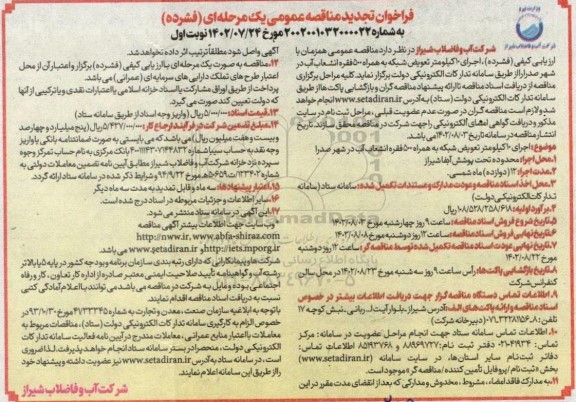 فراخوان تجدید مناقصه عمومی یک مرحله‌ای (فشرده)
به شماره ۲۰۰۲۰۰۱۰۳۲۰۰۰۰۲۲ مورخ ۱۴۰۲/۰۷/۲۴ نوبت اول
شرکت آب و فاضلاب شیراز
شرکت آب و فاضلاب شیراز در نظر دارد مناقصه عمومی همزمان با
ارزیابی کیفی (فشرده)، اجرای ۱۰ کیلومتر تعویض شبکه به همراه ۵۰۰ فقره انشعاب آب در
شهر صدرا را از طریق سامانه تدارکات الکترونیکی دولت برگزار نماید. کلیه مراحل برگزاری
مناقصه از دریافت اسناد مناقصه تا ارائه پیشنهاد مناقصه گران و بازگشایی پاکت‌ها از طریق
سامانه تدارکات الکترونیکی دولت (ستاد) به آدرس www.setadiran.ir انجام خواهد
شد و لازم است مناقصه گران در صورت عدم عضویت قبلی، مراحل ثبت نام در سایت
مذکور و دریافت گواهی امضای الکترونیکی را جهت شرکت در مناقصه محقق سازند. تاریخ
انتشار مناقصه در سامانه تاریخ ۱۴۰۲/۰۸/۰۲ می باشد.
موضوع: اجرای ۱۰ کیلومتر تعویض شبکه به همراه ۵۰۰ فقره انشعاب آب در شهر صدرا
۱. محل اجرا: محدوده تحت پوشش آبفا شیراز
۲. مدت اجرا: ۱۲ (دوازده) ماه شمسی.
۳. محل اخذ اسناد مناقصه و عودت مدارک و مستندات تکمیل شده: سامانه ستاد (سامانه
تدارکات الکترونیکی دولت)
۴. برآورد اولیه:
۵. تاریخ شروع فروش اسناد مناقصه: ساعت ۹ روز چهارشنبه مورخ ۱۴۰۲/۰۸/۰۳
۶. تاریخ نهایی فروش اسناد مناقصه: ساعت ۱۳ روز دوشنبه مورخ ۱۴۰۲/۰۸/۰۸
۷. تاریخ نهایی عودت اسناد مناقصه تکمیل شده توسط مناقصه گر: ساعت ۱۳ روز دوشنبه
مورخ ۱۴۰۲/۰۸/۲۲
۸. تاریخ بازگشایی پاکت‌ها: رأس ساعت ۹ روز سه شنبه مورخ ۱۴۰۲/۰۸/۲۳ در محل سالن
کنفرانس شرکت
۹. اطلاعات تماس دستگاه مناقصه گزار جهت دریافت اطلاعات بیشتر در خصوص
اسناد مناقصه و ارائه پاکت‌های الف: آدرس شیراز، بلوار آیت ا... ربانی، نبش کوچه ۱۷
تلفن: (دبیرخانه شرکت)
۱۰. اطلاعات تماس سامانه ستاد جهت انجام مراحل عضویت در سامانه: مرکز
تماس: ۴۱۹۳۴-۰۲۱ دفتر ثبت نام: ۸۸۹۶۹۷۳۷ و ۸۵۱۹۳۷۶۸ اطلاعات تماس
دفاتر ثبت نام سایر استان‌ها، در سایت سامانه (www.setadiran.ir)
بخش «ثبت نام / پروفایل تأمین کننده / مناقصه گر» موجود است.
۱۱. به مدارک فاقد امضاء، مشروط، مخدوش و مدارکی که بعد از انقضای مدت مقرر در این
آگهی واصل شود مطلقاً ترتیب اثر داده نخواهد شد.
۱۲. مناقصه به صورت یک مرحله‌ای با ارزیابی کیفی (فشرده) برگزار و اعتبار آن از محل
اعتبار طرح های تملک دارایی های سرمایه‌ای (عمرانی) می باشد.
پرداخت از طریق اوراق مشارکت یا اسناد خزانه اسلامی یا اعتبارات نقدی و یا ترکیبی از آنها
که دولت تعیین کند صورت می گیرد.
۱۳. قیمت اسناد: ریال (واریز وجه اسناد از طریق سامانه ستاد)
۱۴. مبلغ تضمین شرکت در فرآیند ارجاع کار: (پنج میلیارد و چهارصد
و بیست و هفت میلیون ریال) می باشد که می بایستی به صورت ضمانتنامه بانکی یا واریز
وجه نقد به حساب سیبا شماره نزد بانک مرکزی به نام حساب تمرکز وجوه
سپرده نزد خزانه شرکت آب و فاضلاب شیراز مطابق آیین نامه تضمین معاملات دولتی به
شماره ۱۲۳۴۰۲/ت۵۰۶۵۹هـ مورخ ۹۴/۹/۲۲ و شرایط ذکر شده در سامانه ستاد ارائه گردد.
۱۵. اعتبار پیشنهادها: سه ماه و قابل تمدید به مدت سه ماه دیگر
۱۶. سایر اطلاعات و جزئیات مربوطه در اسناد درج شده است.
۱۷. این آگهی در سامانه ستاد منتشر می شود.
وب سایت جهت اطلاعات بیشتر آگهی مناقصه
http://nww.ir, www.abfa-shiraz.com
http://iets.mporg.ir و www.setadiran.ir می باشد.
شرکت ها و پیمانکارانی که دارای رتبه بندی سازمان برنامه و بودجه کشور در پایه ۵ یا بالاتر
رشته آب و گواهینامه تأیید صلاحیت ایمنی معتبر صادره از اداره کار تعاون، کار و رفاه
اجتماعی بوده و مایل به شرکت در مناقصه می باشند می توانند با اعلام آمادگی کتبی
نسبت به دریافت اسناد مناقصه اقدام نمایند.
با توجه به ابلاغیه سازمان صنعت، معدن و تجارت به شماره ۴۷۳۳۳۴۵ مورخ ۹۳/۱۰/۳۰ در
خصوص الزام به کارگیری سامانه تدارکات الکترونیکی دولت (ستاد)، مناقصات مربوط به
معاملات با اعتبار منابع عمرانی، معاملات مندرج در آیین نامه فعالیت سامانه تدارکات
الکترونیکی دولت، منحصراً در بستر سامانه ستاد انجام خواهد پذیرفت. لذا ضروری
است، در سامانه ستاد به آدرس www.setadiran.ir نیز عضویت داشته و پیشنهاد خود
را از طریق این سامانه اعلام نمایند.
شرکت آب و فاضلاب شیراز